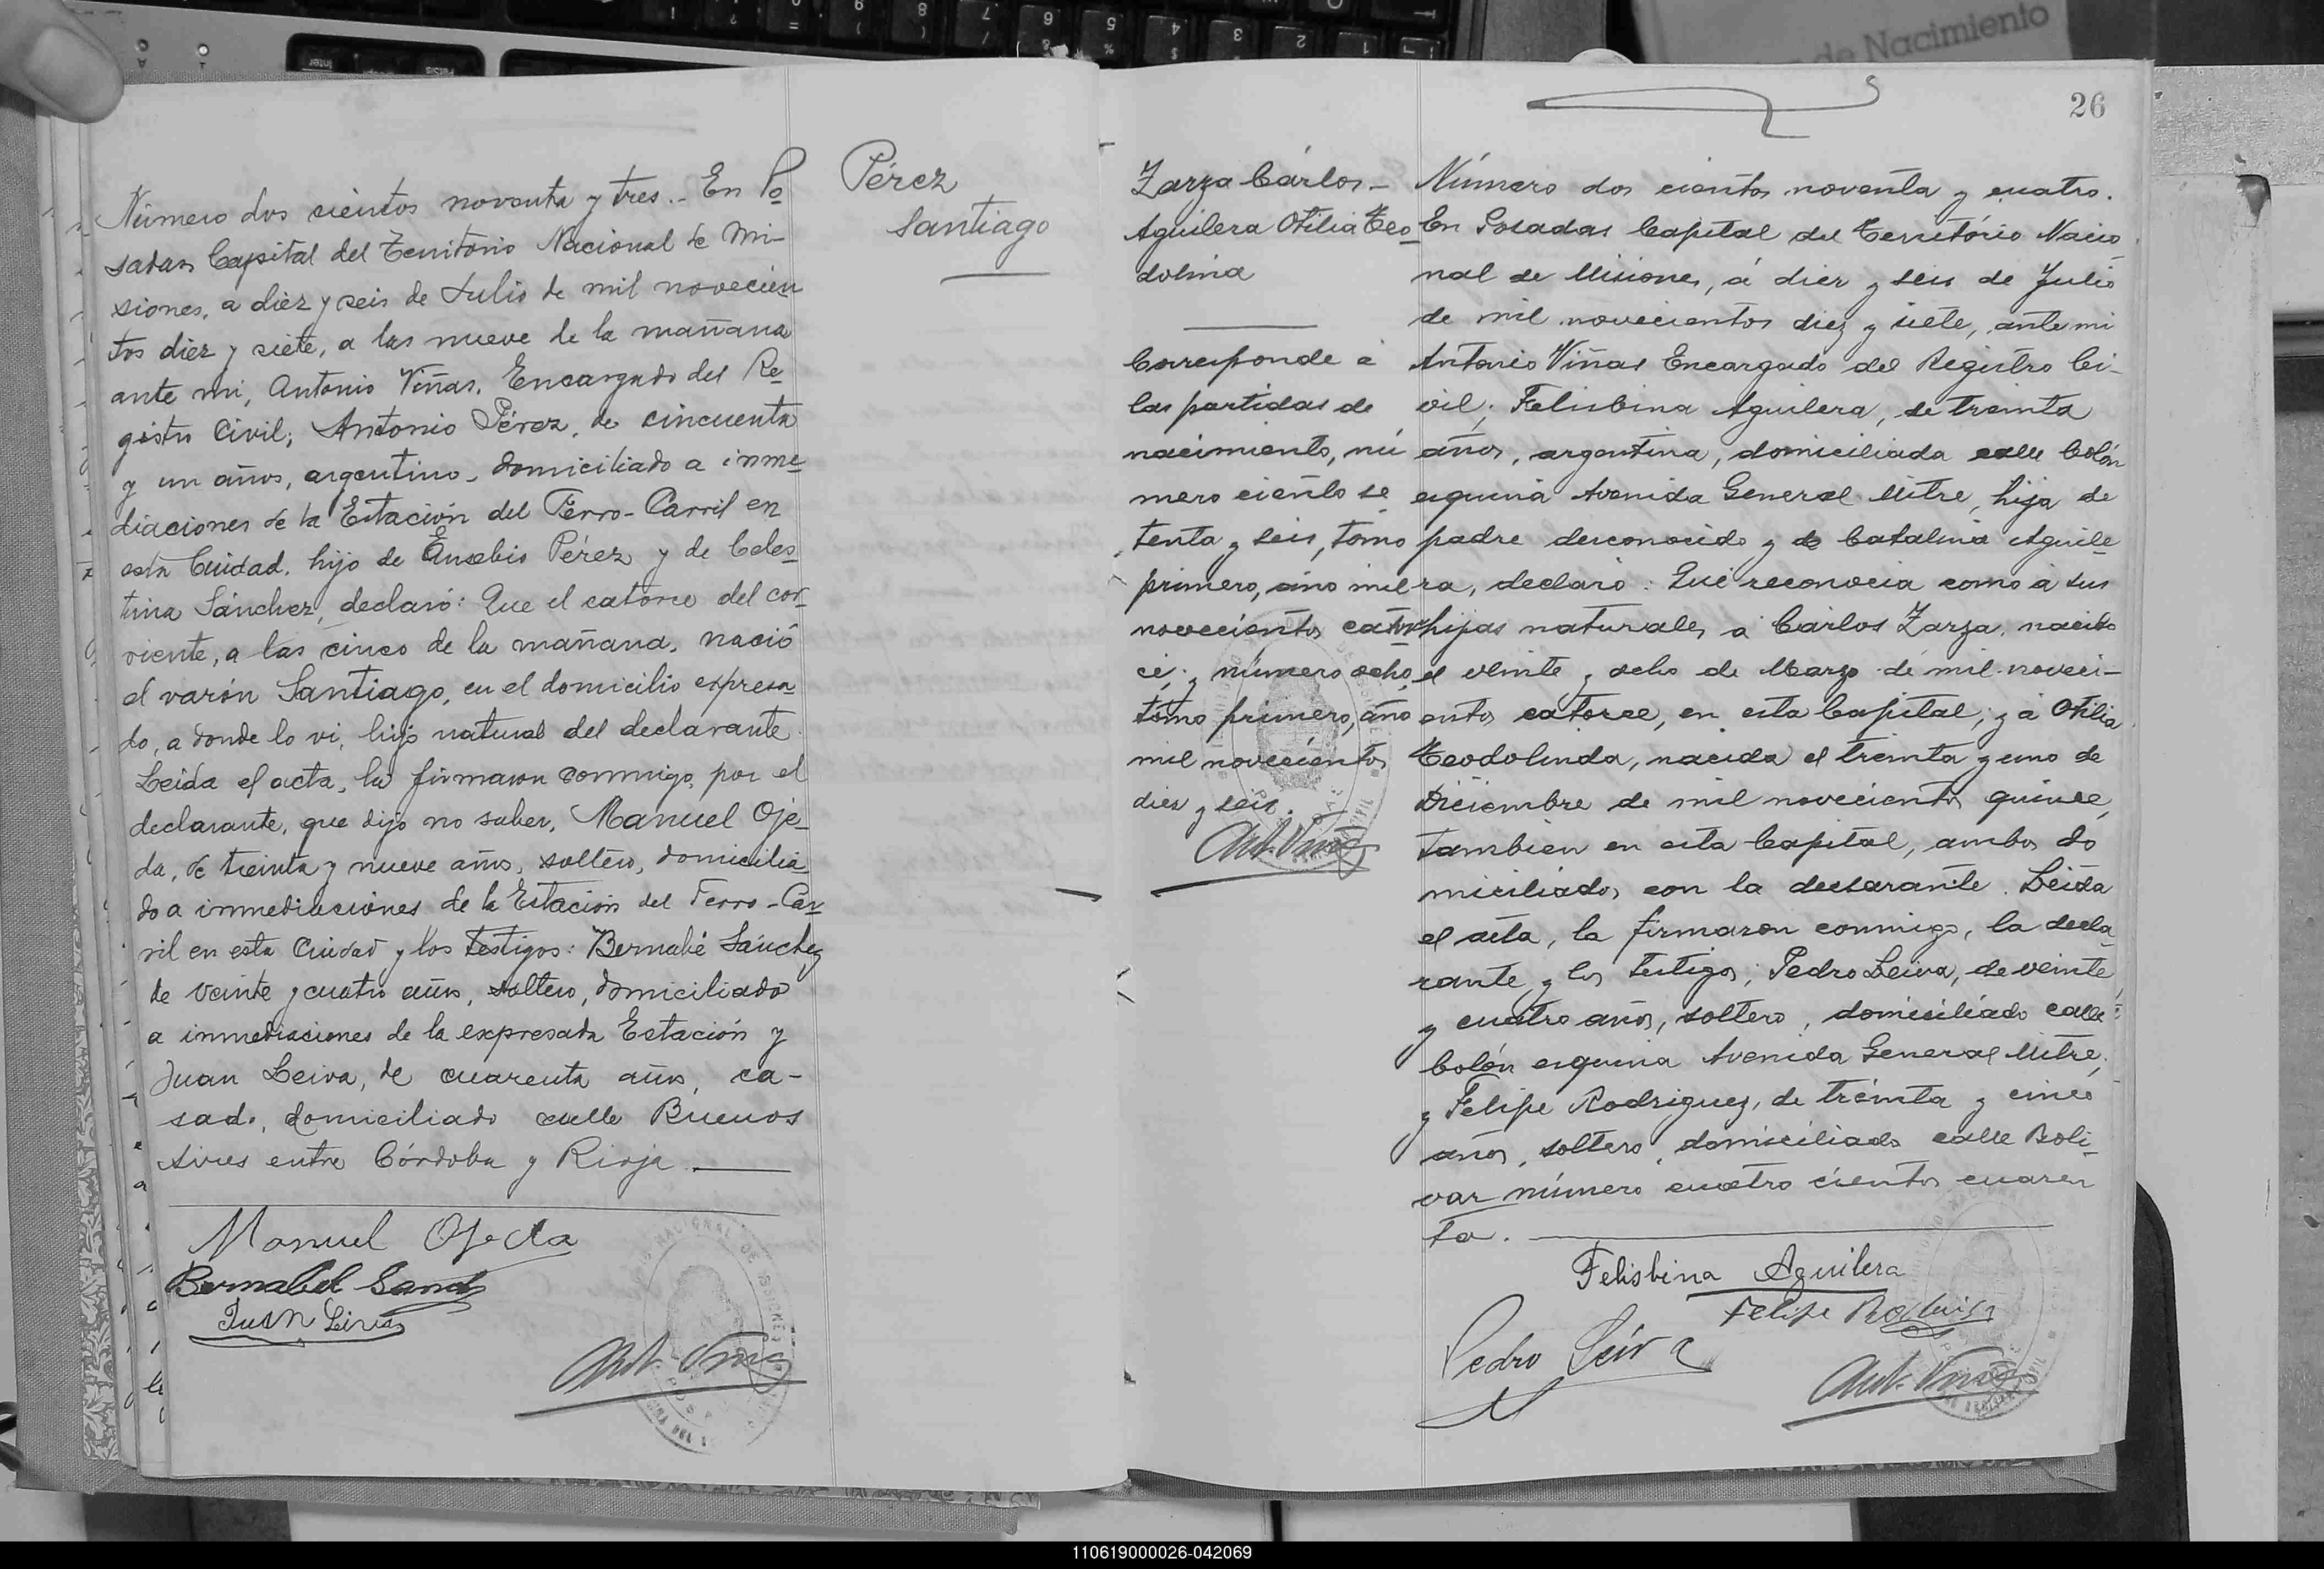 de Nacimiento
Número dos cientos noventa y tres.- En Po
sadas Capital del Territorio Nacional de Mi-
siones, a diez y seis de Julio de mil novecien
tos diez y siete, a las nueve de la mañana
ante mi, Antonio Viñas, Encargado del Re
gistro Civil; Antonio Pérez, de cincuenta
y un años, argentino, domiciliado a inme
diaciones de la Estación del Ferro-Carril en
esta Ciudad, hijo de Eusebio Pérez y de Celes
tina Sánchez, declaró: Que el catorce del cor
riente, a las cinco de la mañana, nació
el varón Santiago, en el domicilio expresa
do, a donde lo vi, hijo natural del declarante.
Leida el acta, la firmaron conmigo, por el
declarante, que dijo no saber, Manuel Oje-
da, de treinta y nueve años, soltero, domicilia
do a inmediaciones de la Estación del Ferro-Car
ril en esta Ciudad y los testigos: Bernabé Sánchez
de veinte y cuatro años, soltero, domiciliado
a inmediaciones de la expresada Estación y
Juan Leiva, de cuarenta años, ca-
sado, domiciliado calle Buenos
Aires entre Córdoba y Rioja.
Manuel Ojeda
Bernabel Sanch
Juan Leiva
Ant. Viñas
Pérez
Santiago
26
Zarza Cárlos.-
Aguilera Otilia Teo
dolina
Corresponde á
las partidas de
nacimiento, nú
mero ciento se
tenta y seis, tomo
primero, año mil
novecientos cator
ce; y número ocho,
tomo primero, año
mil novecientos
diez y seis.
Ant. Viñas
Número dos cientos noventa y cuatro.
En Posadas Capital del Território Nacio
nal de Misiones, á diez y seis de Julio
de mil novecientos diez y siete, ante mi
Antonio Viñas Encargado del Registro Ci-
vil; Felisbina Aguilera, de treinta
años, argentina, domiciliada calle Colón
esquina Avenida General Mitre, hija de
padre desconocido y de Catalina Aguile
ra, declaró: Que reconocia como á sus
hijas naturales, a Cárlos Zarza, nacido
el veinte y ocho de Marzo de mil noveci-
entos catorce, en esta Capital; y á Otilia
Teodolinda, nacida el treinta y uno de
Diciembre de mil novecientos quince,
tambien en esta Capital, ambos do
miciliados con la declarante. Leida
el acta, la firmaron conmigo, la decla
rante y los testigos; Pedro Leiva, de veinte
y cuatro años, soltero, domiciliado calle
Colón esquina Avenida General Mitre;
y Felipe Rodriguez, de treinta y cinco
años, soltero, domiciliado calle Boli
var número cuatro cientos cuaren
ta.
Felisbina Aguilera
Felipe Rodriguez
Pedro Leiva
Ant. Viñas
110619000026-042069